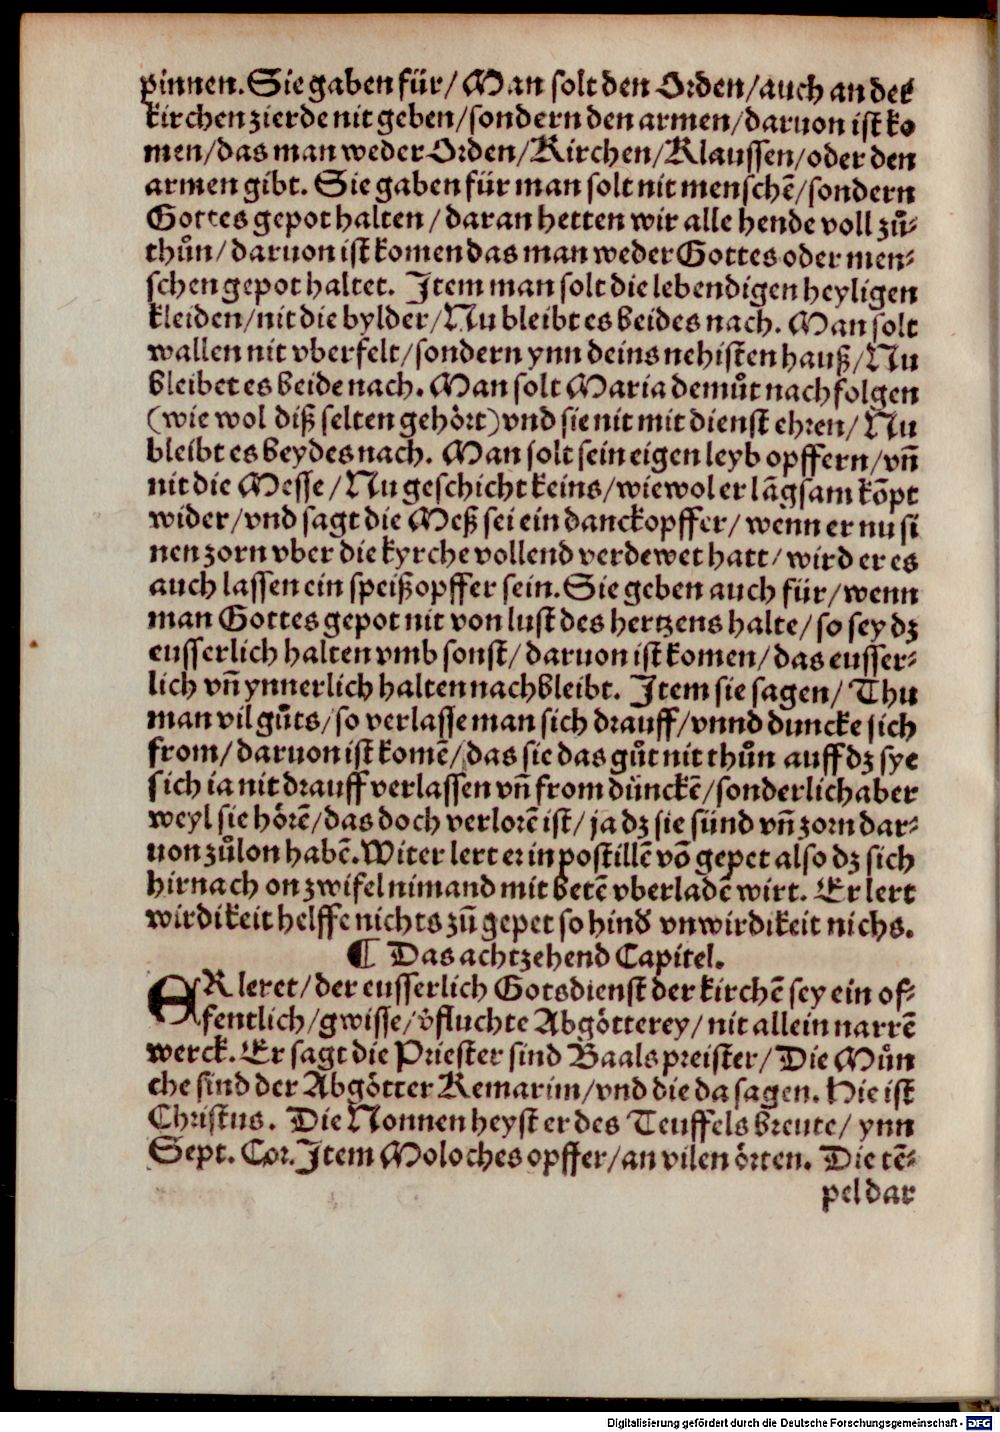 pinnen. Sie gaben für/ Man solt den Orden/auch an der
kirchen zierde nit geben/sondern den armen/daruon ist ko
men/das man weder Orden/Kirchen/Klaussen/oder den
armen gibt. Sie gaben für man solt nit menschē/sondern
Gottes gepot halten/daran hetten wir alle hende voll zů⸗
thůn/daruon ist komen das man weder Gottes oder men⸗
schen gepot haltet. Item man solt die lebendigen heyligen
kleiden/nit die bylder/Nu bleibt es beides nach. Man solt
wallen nit vberfelt/sondern ynn deins nehisten hauß/Nu
bleibet es beide nach. Man solt Maria demůt nachfolgen
(wie wol diß selten gehört)vnd sie nit mit dienst ehren/Nu
bleibt es beydes nach. Man solt sein eigen leyb opffern/vñ
nit die Messe/Nu geschicht keins/wiewol er lāgsam kōpt
wider/vnd sagt die Meß sei ein danckopffer/wenn er nu si
nen zorn vber die kyrche vollend verdewet hatt/wird er es
auch lassen ein speißopffer sein. Sie geben auch für/wenn
man Gottes gepot nit von lust des hertzens halte/so sey dz
eusserlich halten vmb sonst/daruon ist komen/das eusser⸗
lich vñ ynnerlich halten nachbleibt. Item sie sagen/Thu
man vil gůts/so verlasse man sich drauff/vnnd duncke sich
from/daruon ist komē/das sie das gůt nit thůn auff dz sye
sich ia nit drauff verlassen vñ from dünckē/sonderlich aber
weyl sie hörē/das doch verlorē ist/ja dz sie sünd vñ zorn dar⸗
uon zůlon habē. Witer lert er in postillē vō gepet also dz sich
hirnach on zwifel nimand mit betē vberladē wirt. Er lert
wirdikeit helffe nichts zů gepet so hind̓ vnwirdikeit nichs.
¶ Das achtzehend Capitel.
ER leret/der eusserlich Gotsdienst der kirchē sey ein of⸗
fentlich/gwisse/v̄fluchte Abgötterey/nit allein narrē
werck. Er sagt die Priester sind Baals preister/Die Mün
che sind der Abgötter Kemarim/vnd die da sagen. Hie ist
Christus. Die Nonnen heyst er des Teuffels breute/ynn
Sept. Cor. Item Moloches opffer/an vilen örten. Die tē⸗
pel dar
Digitalisierung gefördert durch die Deutsche Forschungsgemeinschaft - DFG